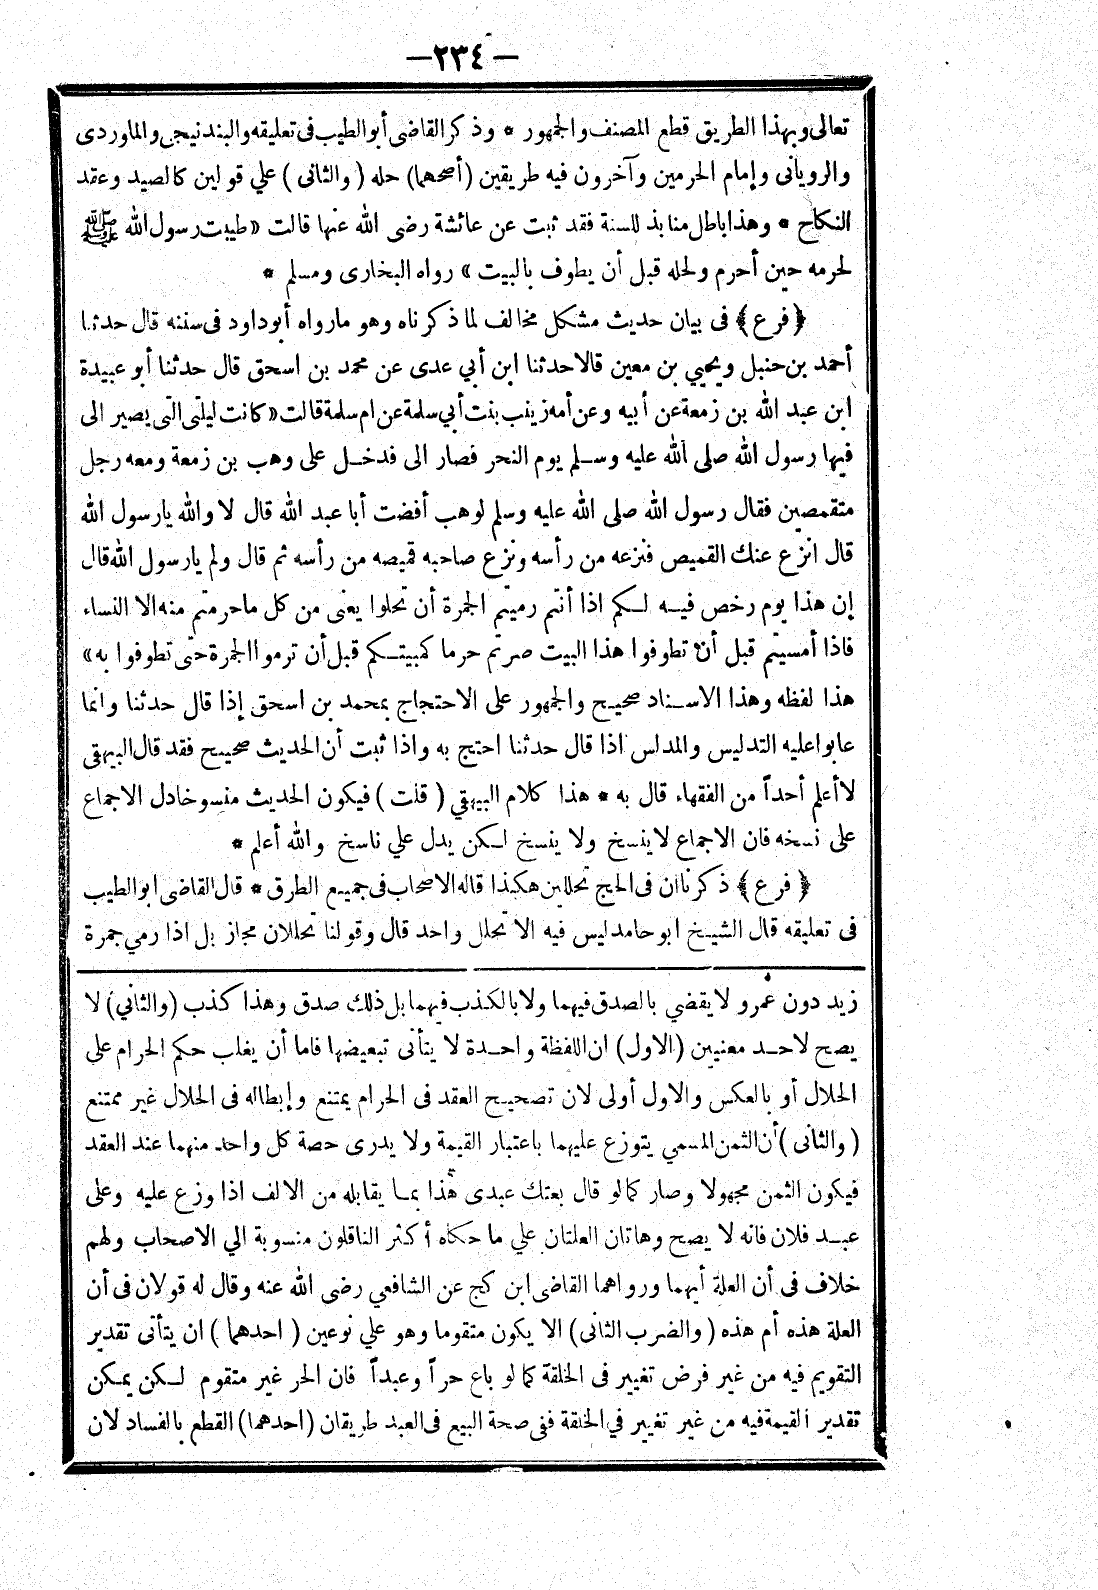 -٢٣٤-
تعالى وبهذا الطريق قطع المصنف والجمهور * وذكر القاضى أبو الطيب فى تعليقه والبندنيجى والماوردى
والرويانى وإمام الحرمين وآخرون فيه طريقين (أصحهما) حله (والثانى) علي قولين كالصيد وعقد
النكاح * وهذا باطل منابذ للسنة فقد ثبت عن عائشة رضى الله عنها قالت «طيبت رسول الله ﷺ
لحرمه حين أحرم ولحله قبل أن يطوف بالبيت» رواه البخارى ومسلم *
﴿فرع﴾ فى بيان حديث مشكل مخالف لما ذكرناه وهو مارواه أبو داود فى سننه قال حدثنا
أحمد بن حنبل ويحيي بن معين قالا حدثنا ابن أبي عدى عن محمد بن اسحق قال حدثنا أبو عبيدة
ابن عبد الله بن زمعة عن أبيه وعن أمه زينب بنت أبي سلمة عن ام سلمة قالت «كانت ليلتى التى يصير الى
فيها رسول الله صلى الله عليه وسلم يوم النحر فصار الى فدخل على وهب بن زمعة ومعه رجل
متقمصين فقال رسول الله صلى الله عليه وسلم لوهب أفضت أبا عبد الله قال لا والله يارسول الله
قال انزع عنك القميص فنزعه من رأسه ونزع صاحبه قميصه من رأسه ثم قال ولم يارسول الله قال
إن هذا يوم رخص فيه لكم اذا أنتم رميتم الجمرة أن تحلوا يعنى من كل ماحرمتم منه الا النساء
فاذا أمسيتم قبل أن تطوفوا هذا البيت صرتم حرما كهيئتكم قبل أن ترموا الجمرة حتى تطوفوا به»
هذا لفظه وهذا الاسناد صحيح والجمهور على الاحتجاج بمحمد بن اسحق إذا قال حدثنا وانما
عابوا عليه التدليس والمدلس اذا قال حدثنا احتج به واذا ثبت أن الحديث صحيح فقد قال البيهقى
لا أعلم أحداً من الفقهاء قال به * هذا كلام البيهقي (قلت) فيكون الحديث منسوخا دل الاجماع
على نسخه فان الاجماع لا ينسخ ولا ينسخ لكن يدل علي ناسخ والله أعلم *
﴿فرع﴾ ذكرنا ان فى الحج تحللين هكذا قاله الاصحاب فى جميع الطرق * قال القاضى ابو الطيب
فى تعليقه قال الشيخ ابو حامد ليس فيه الا تحلل واحد قال وقولنا تحللان مجاز بل اذا رمي جمرة
زيد دون عمرو لا يقضي بالصدق فيهما ولا بالكذب فيهما بل ذلك صدق وهذا كذب (والثاني) لا
يصح لاحد معنيين (الاول) ان اللفظة واحدة لا يتأتى تبعيضها فاما أن يغلب حكم الحرام على
الحلال أو بالعكس والاول أولى لان تصحيح العقد فى الحرام يمتنع وإبطاله فى الحلال غير ممتنع
(والثانى) أن الثمن المسمي يتوزع عليهما باعتبار القيمة ولا يدرى حصة كل واحد منهما عند العقد
فيكون الثمن مجهولا وصار كما لو قال بعتك عبدى هذا بما يقابله من الالف اذا وزع عليه وعلى
عبد فلان فانه لا يصح وهاتان العلتان علي ما حكاه أكثر الناقلون منسوبة الي الاصحاب ولهم
خلاف فى أن العلة أيهما ورواهما القاضى ابن كج عن الشافعي رضى الله عنه وقال له قولان فى أن
العلة هذه أم هذه (والضرب الثانى) الا يكون متقوما وهو علي نوعين (احدهما) ان يتأتى تقدير
التقويم فيه من غير فرض تغيير فى الخلقة كما لو باع حراً وعبداً فان الحر غير متقوم لكن يمكن
تقدير القيمة فيه من غير تغيير في الخلقة ففى صحة البيع فى العبد طريقان (احدهما) القطع بالفساد لان